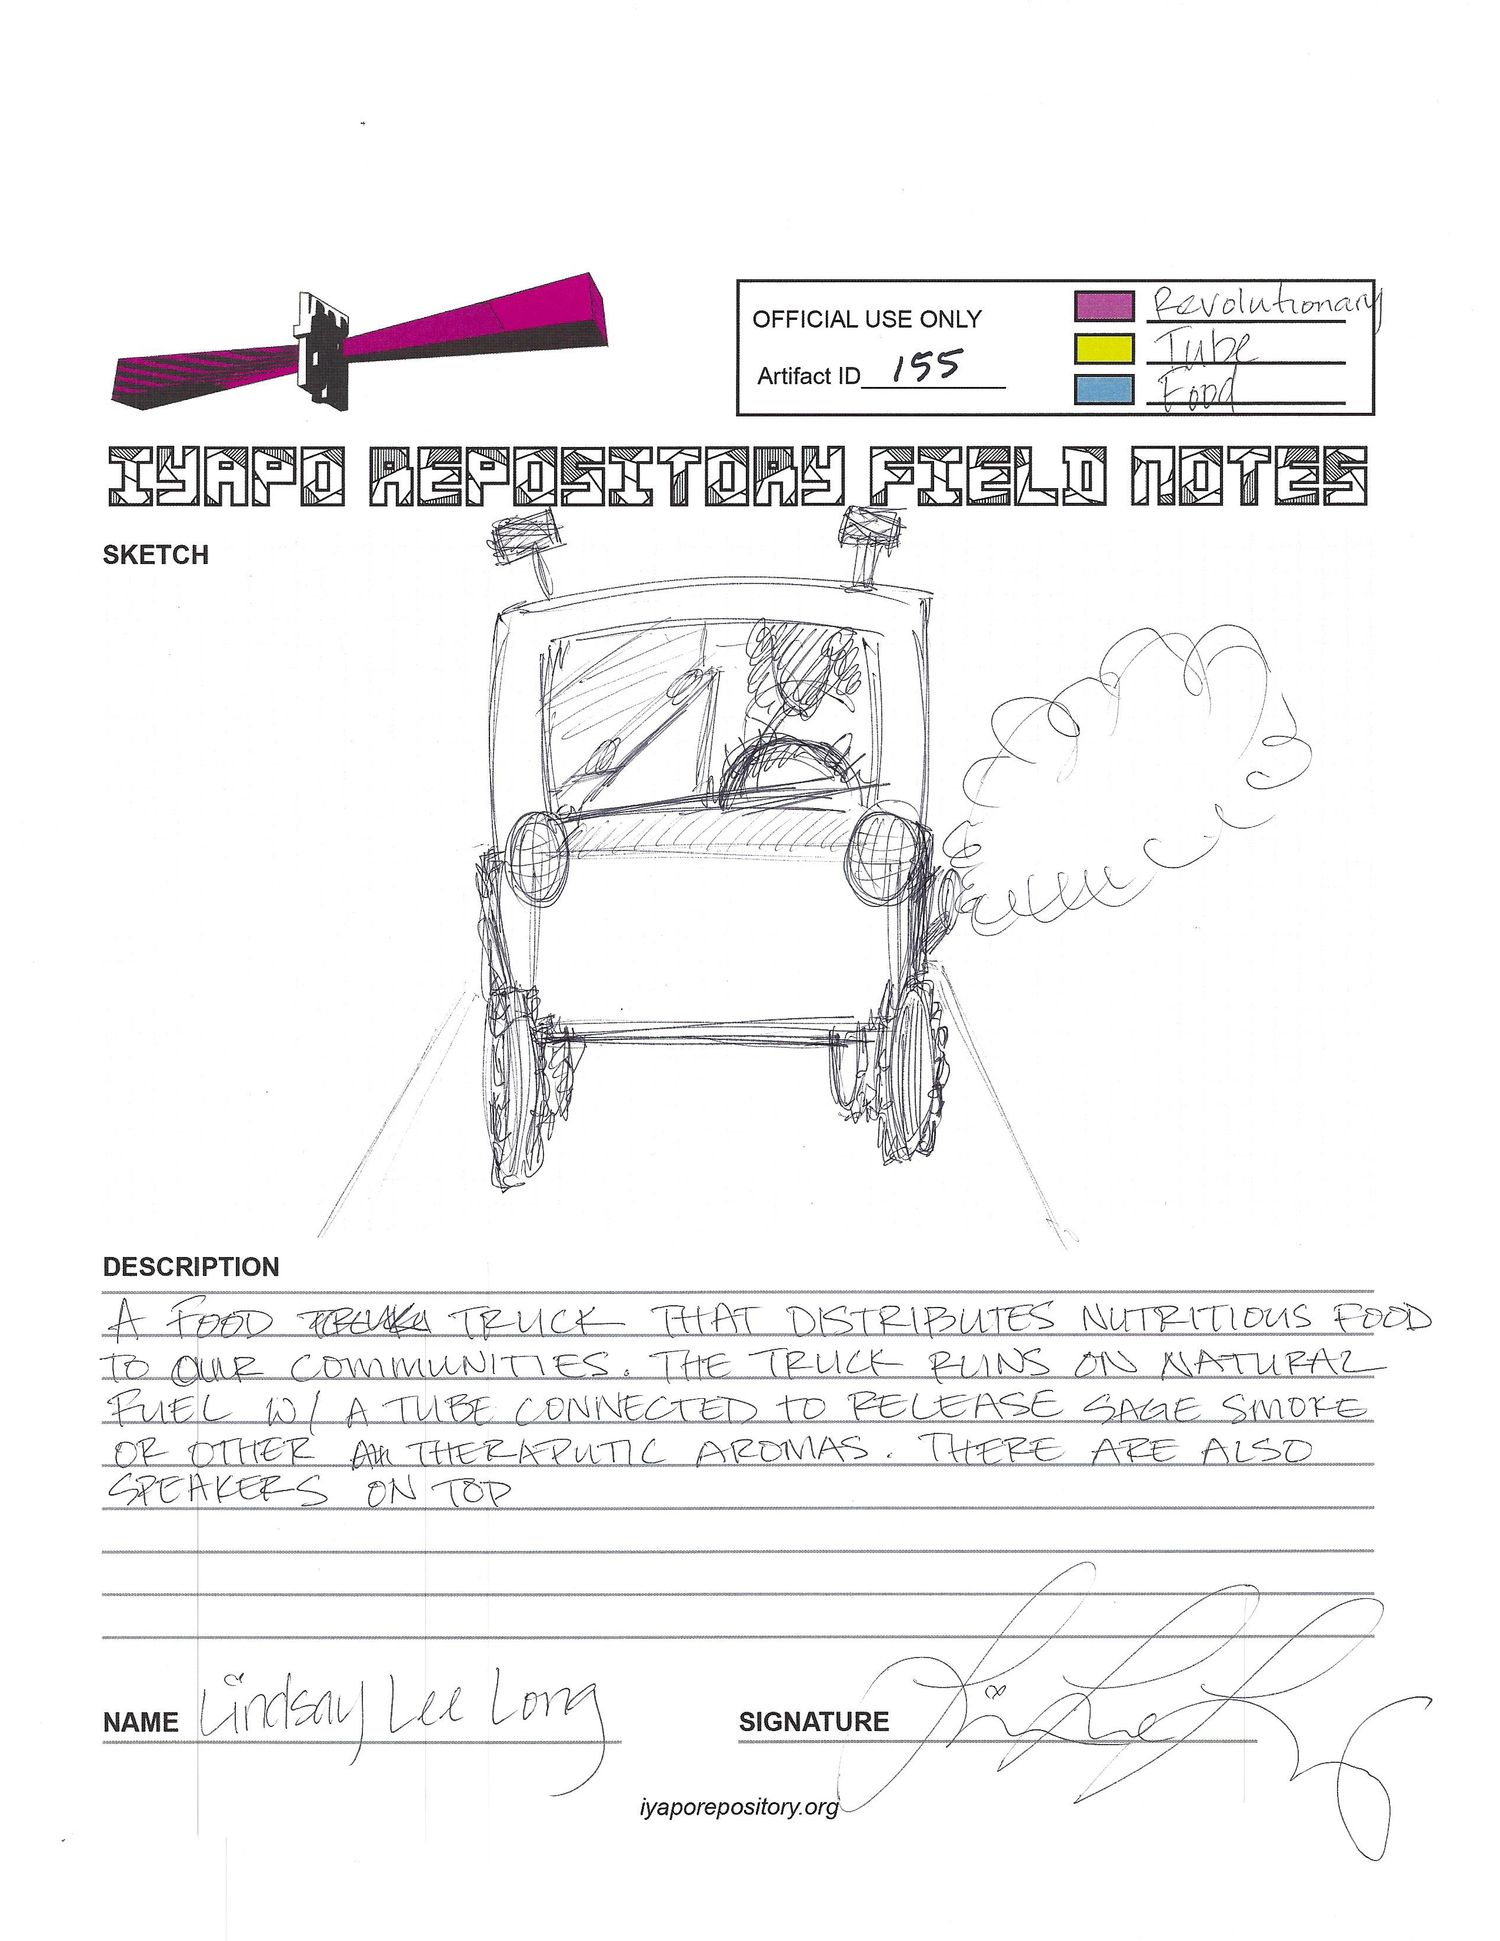 OFFICIAL USE ONLY
Revolutionary
Tube
Artifact ID 155
Food
IYAPO REPOSITORY FIELD NOTES
SKETCH
DESCRIPTION
A FOOD TRUCK THAT DISTRIBUTES NUTRITIOUS FOOD
TO OUR COMMUNITIES. THE TRUCK RUNS ON NATURAL
FUEL W/ A TUBE CONNECTED TO RELEASE SAGE SMOKE
OR OTHER THERAPUTIC AROMAS. THERE ARE ALSO
SPEAKERS ON TOP
NAME Lindsay Lee Long
SIGNATURE
iyaporepository.org